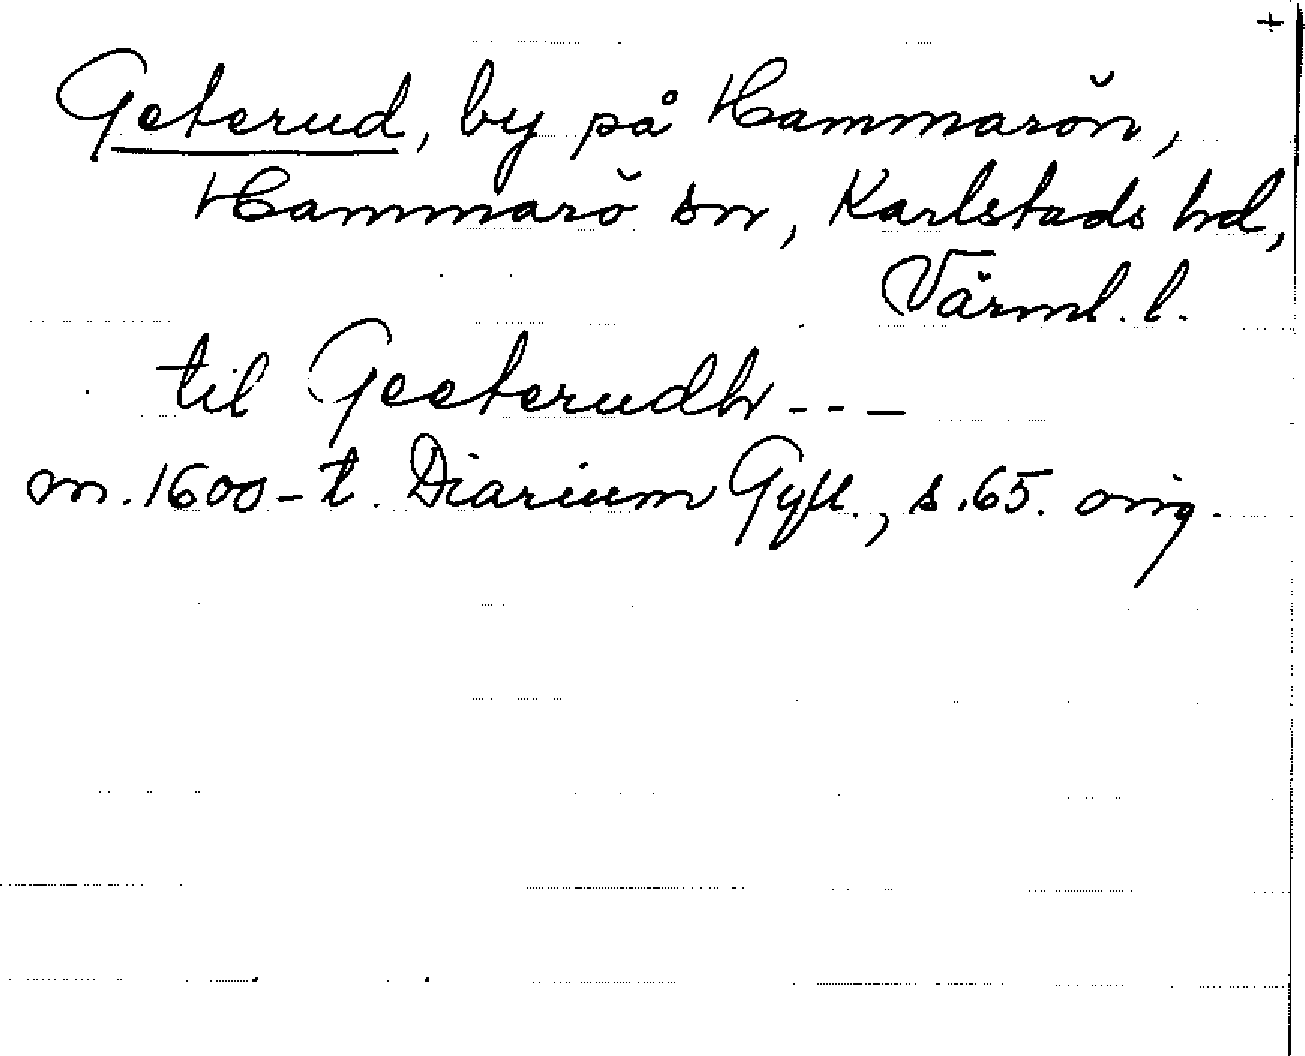 +
Geterud, by på Hammarön,
Hammarö sn, Karlstads hd,
Värml. l.
til Geeterudh - - -
m. 1600-t. Diarium Gyll., s. 65. orig.